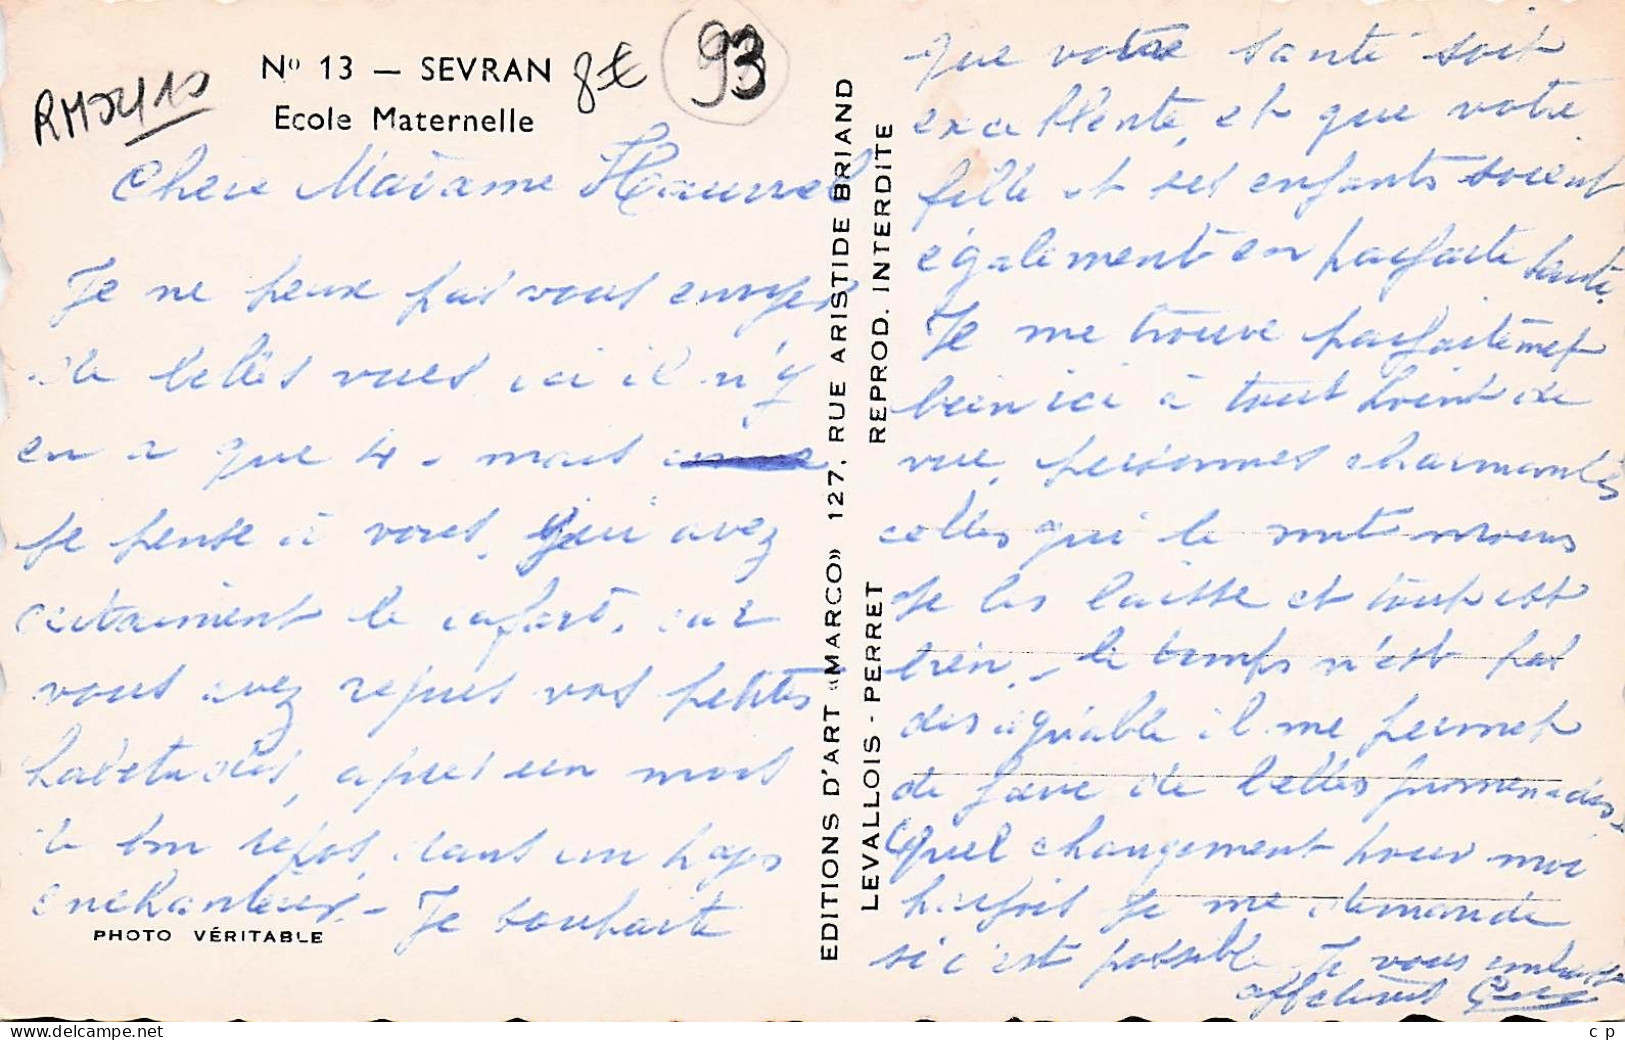 Nº 13 — SEVRAN
Ecole Maternelle
8€
93
Chère Madame
Je ne peux pas vous envoyer
de belles vues ici il n'y
en a que 4 - mais
je pense à vous, qui avez
le confort, car
vous avez repris vos petites
habitudes, après un mois
de bon repos, dans un pays
enchanteur - Je souhaite
PHOTO VÉRITABLE
EDITIONS D'ART «MARCO» 127, RUE ARISTIDE BRIAND
LEVALLOIS - PERRET REPROD. INTERDITE
que votre santé soit
excellente, et que votre
fille et ses enfants soient
également en parfaite santé.
Je me trouve
bien ici à tout point de
vue, personnes charmantes
celles qui le sont moins
je les laisse et tout est
bien. - le temps n'est pas
désagréable il me permet
de faire de belles promenades
Quel changement pour moi
parfois je me demande
si c'est possible. Je vous embrasse